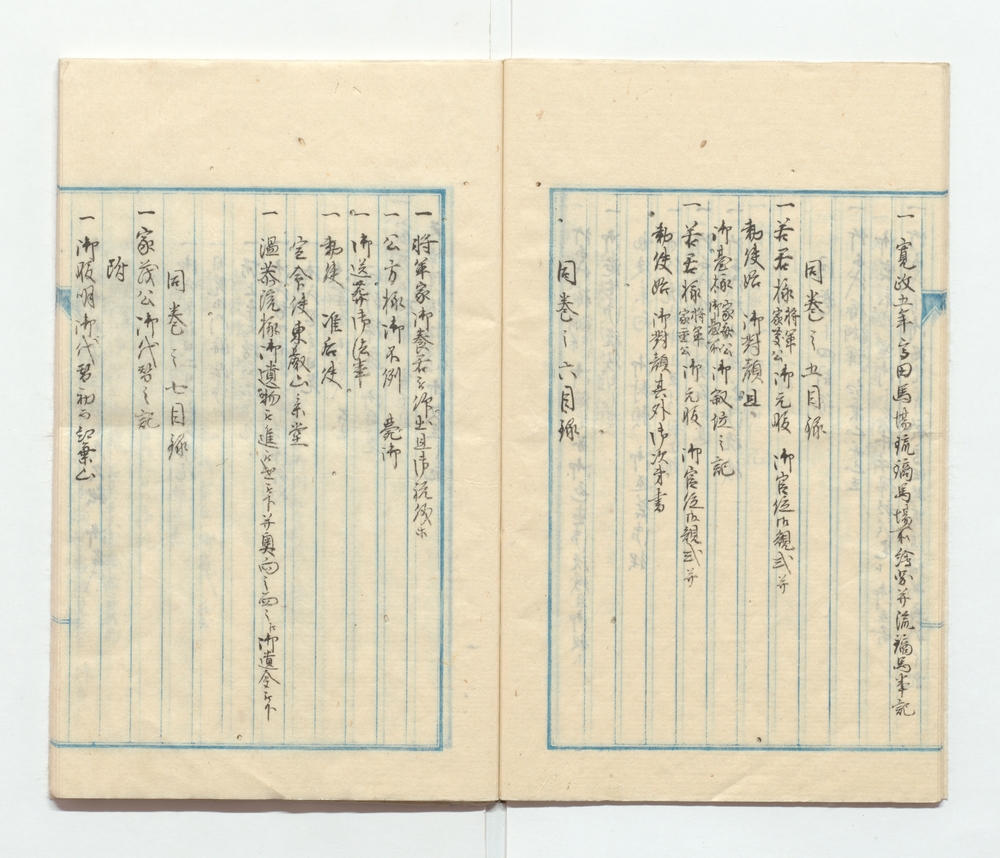 一 寛政五年高田馬場流鏑馬場所絵図并流鏑馬畧記
同巻之五目録
一 若君様将軍家慶公御元服 御官位御規式并
勅使始 御対顔且
御台様家毎公御簾中御叙位之記
一 若君様将軍家定公御元服 御官位御規式并
勅使始 御対顔其外御次第書
同巻之六目録
一 将軍家御養君被仰出且御祝儀
一 公方様御不例 薨御
一 御送葬御法事
一 勅使 准后使
宣命使東叡山参堂
一 温恭院様御遺物被進被下并奥向之面々江御遺金被下
同巻之七目録
一 家茂公御代替之記
附
一 御服明御代替初而紅葉山